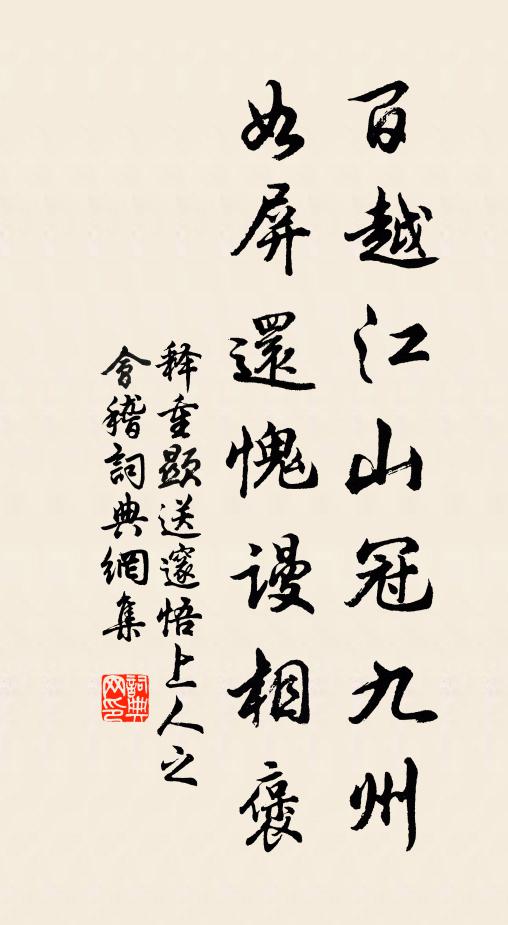 百越江山冠九州
如屏還愧謾相褒
釋重顯送邃悟上人之
會稽詞典網集
詞典
网印